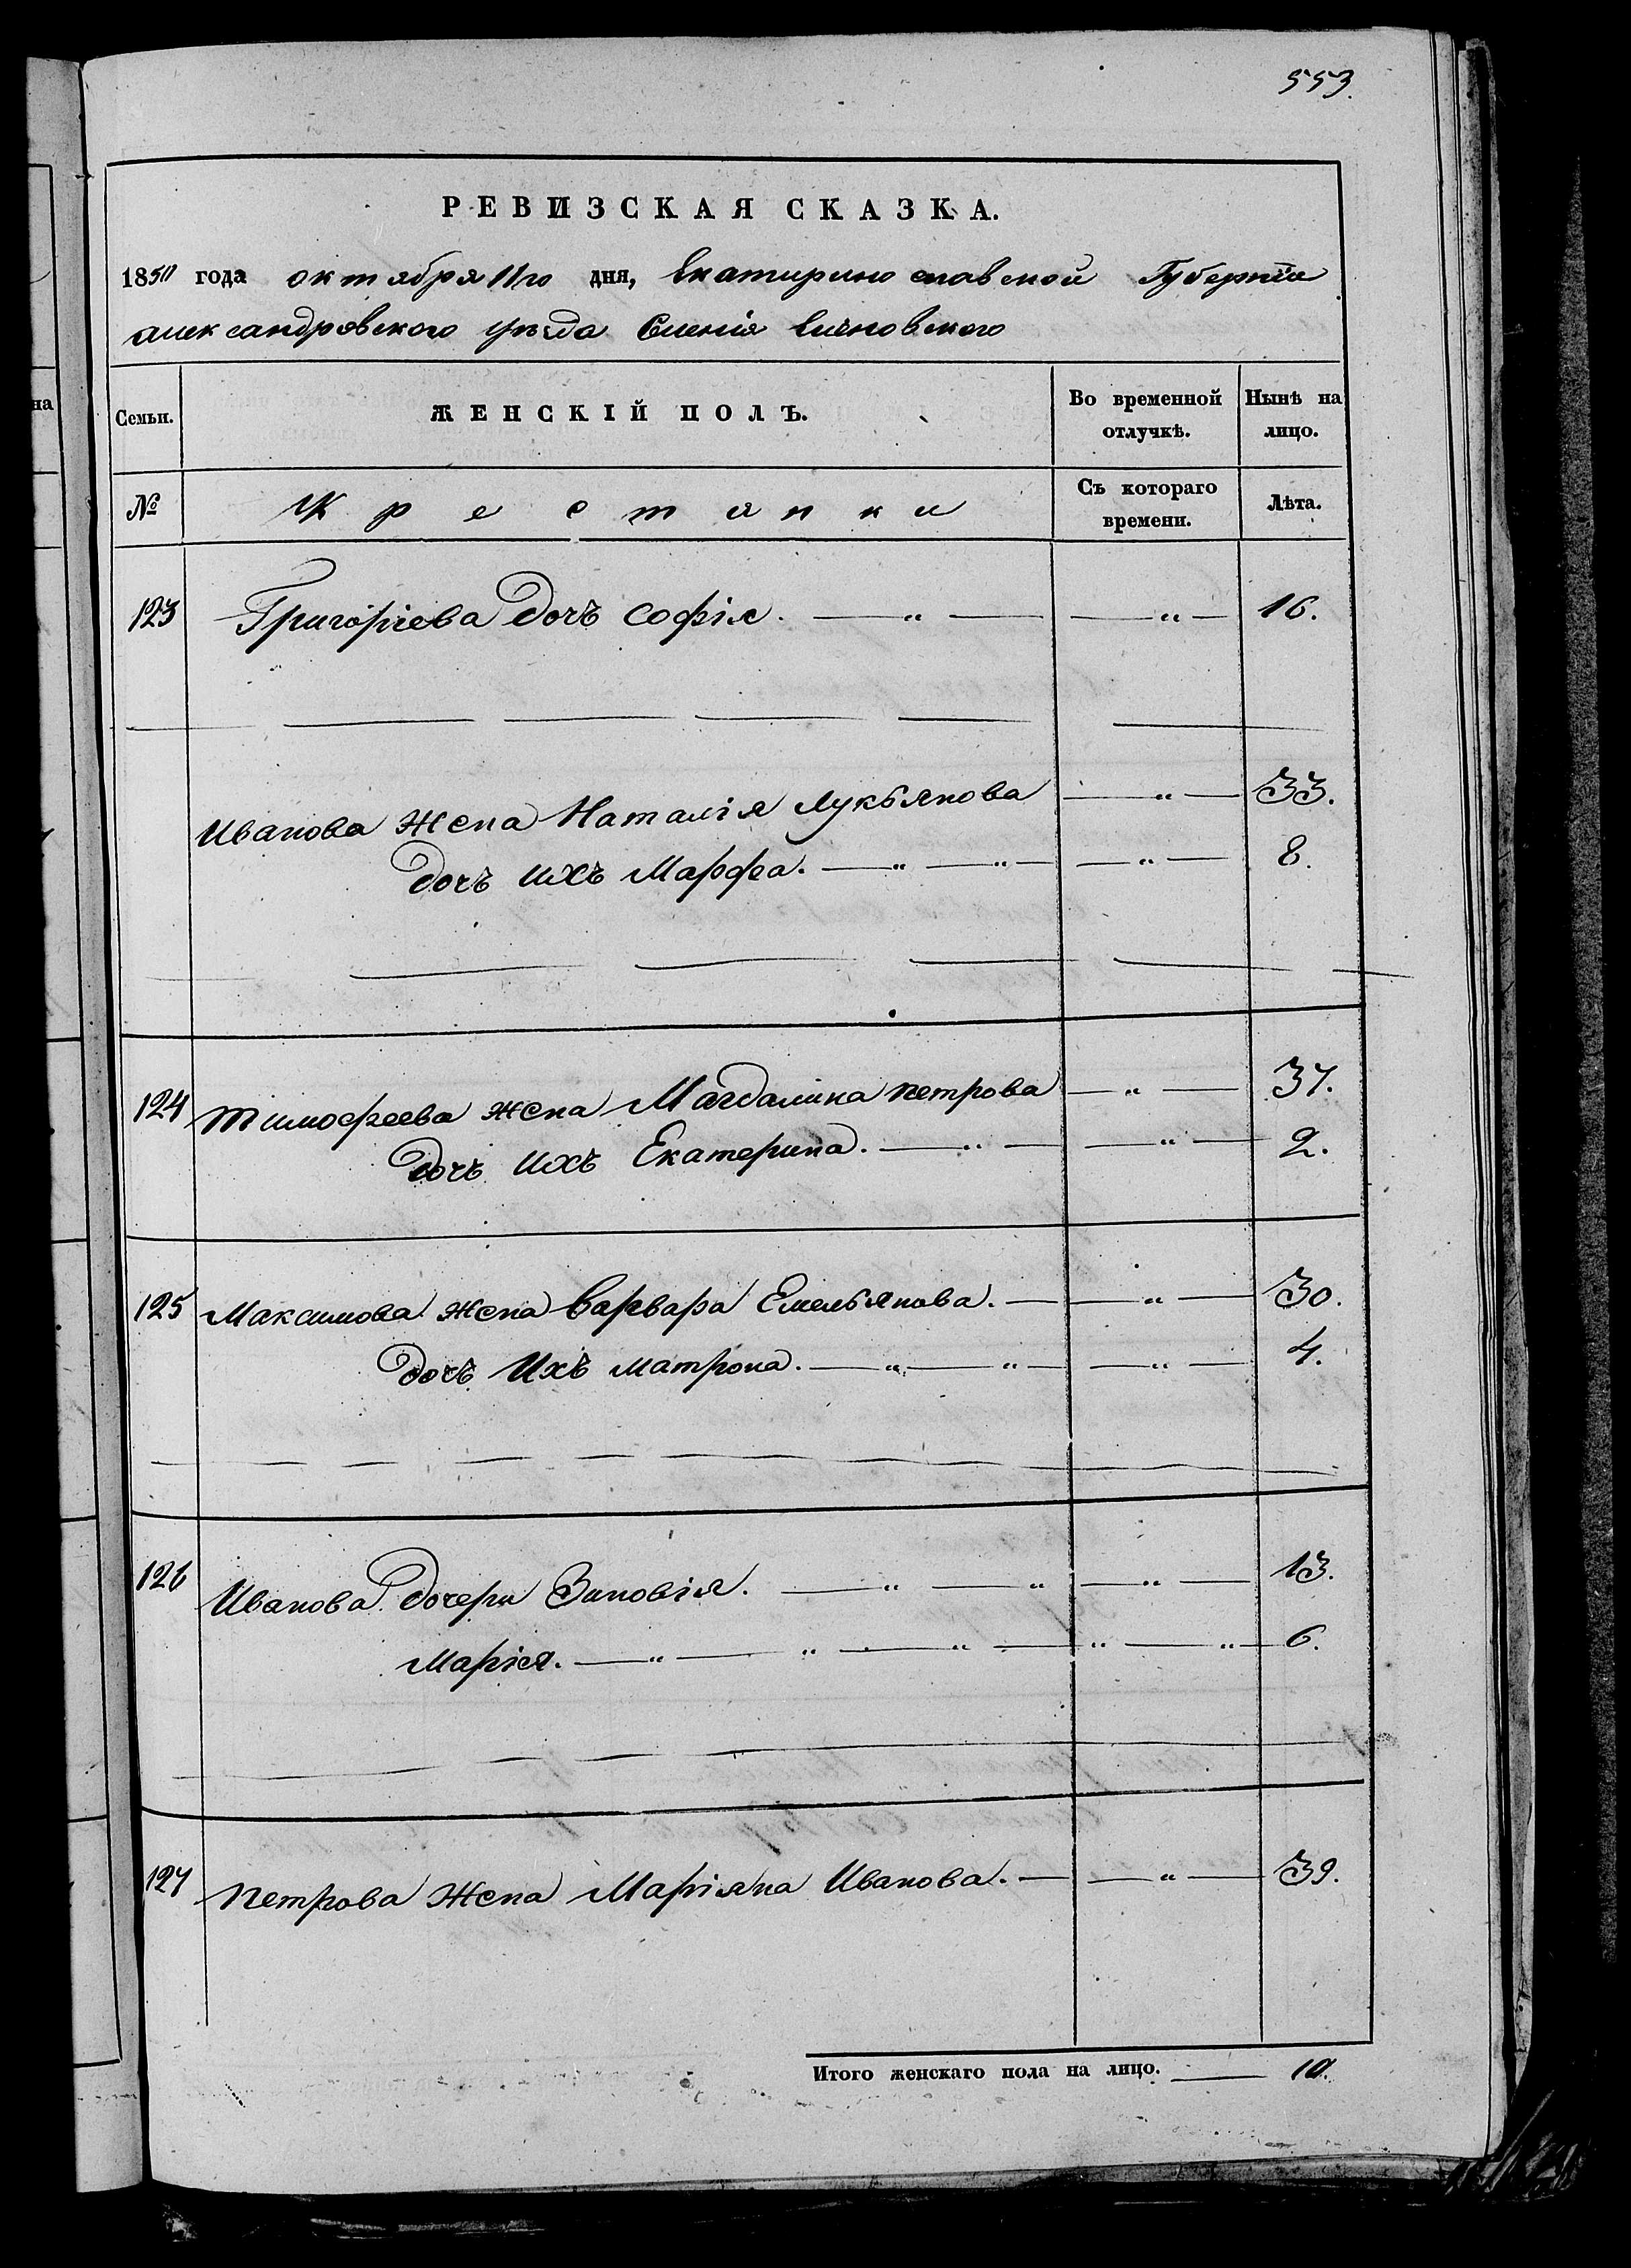 553.
РЕВИЗСКАЯ СКАЗКА.
1850 года октября 11го дня, Екатирино славской Губерніи
алек сандровского уѣзда Селенія
Семьи. ЖЕНСКІЙ ПОЛЪ. Во временной отлучкѣ. Нынѣ на лицо.
№ Крестьянки Съ котораго времени. Лѣта.
123 Григоріева дочъ Софія. — „ — — „ — 16.
Иванова жена Наталія Лукьянова — „ — 33.
дочъ ихъ Марфа. — „ — „ — — „ — 8.
124 Тимофеева жена Магдалина петрова — „ — 37.
дочъ ихъ Екатерина. — „ — — „ — 2.
125 Максимова жена Варвара Емельянова. — — „ — 30.
дочъ Ихъ матрона. — „ — „ — — „ — 4.
126 Иванова дочери Зиновія. — „ — „ — „ — 13.
Марія. — „ — „ — „ — „ — „ — 6.
127 петрова жена Маріяна Иванова. — — „ — 39.
Итого женскаго пола на лицо. — 10.
на